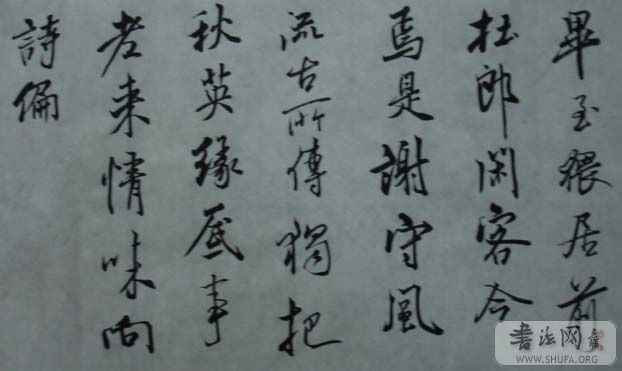 畢至猥居前
杜郎閑客今
焉是謝守風
流古所傳獨把
秋英緣底事
老來情味向
詩偏
书法网
WWW.SHUFA.ORG